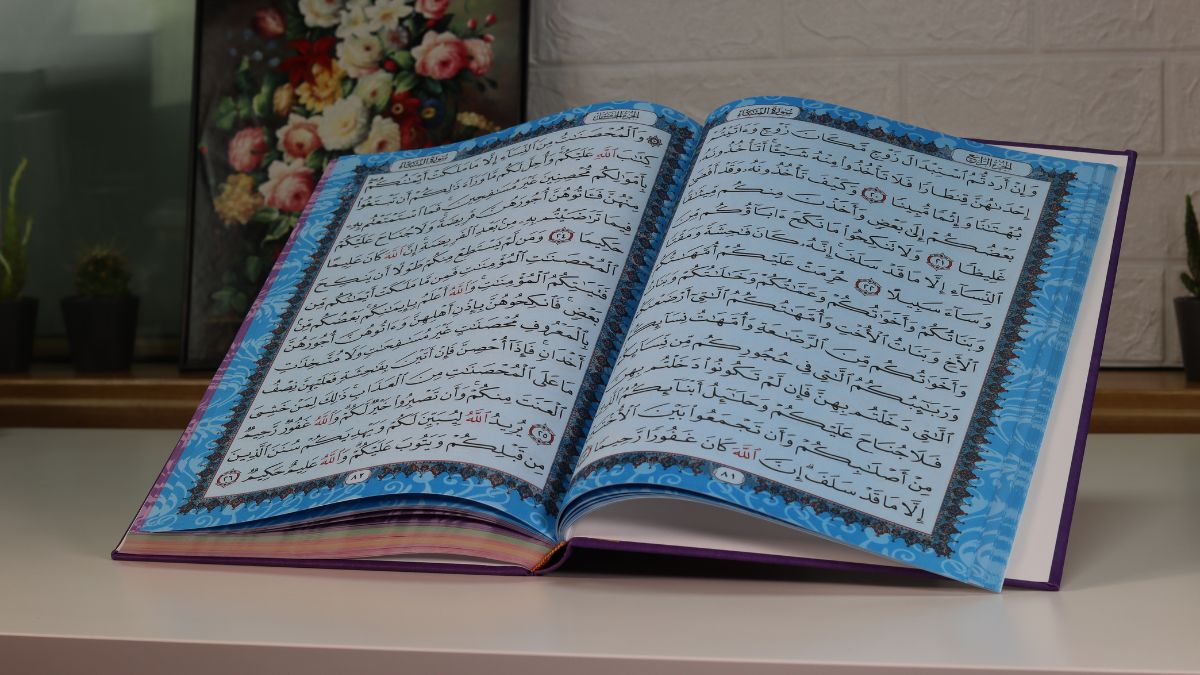 سُورَةُ النِّسَاءِ الجُزْءُ الرَّابِعُ
وَإِنْ أَرَدتُّمُ ٱسْتِبْدَالَ زَوْجٍ مَّكَانَ زَوْجٍ وَءَاتَيْتُمْ
إِحْدَىٰهُنَّ قِنطَارًا فَلَا تَأْخُذُوا۟ مِنْهُ شَيْـًٔا أَتَأْخُذُونَهُۥ
بُهْتَـٰنًا وَإِثْمًا مُّبِينًا ٢٠ وَكَيْفَ تَأْخُذُونَهُۥ وَقَدْ أَفْضَىٰ
بَعْضُكُمْ إِلَىٰ بَعْضٍ وَأَخَذْنَ مِنكُم مِّيثَـٰقًا
غَلِيظًا ٢١ وَلَا تَنكِحُوا۟ مَا نَكَحَ ءَابَآؤُكُم مِّنَ
ٱلنِّسَآءِ إِلَّا مَا قَدْ سَلَفَ إِنَّهُۥ كَانَ فَـٰحِشَةً وَمَقْتًا
وَسَآءَ سَبِيلًا ٢٢ حُرِّمَتْ عَلَيْكُمْ أُمَّهَـٰتُكُمْ
وَبَنَاتُكُمْ وَأَخَوَٰتُكُمْ وَعَمَّـٰتُكُمْ وَخَـٰلَـٰتُكُمْ وَبَنَاتُ
ٱلْأَخِ وَبَنَاتُ ٱلْأُخْتِ وَأُمَّهَـٰتُكُمُ ٱلَّـٰتِىٓ أَرْضَعْنَكُمْ
وَأَخَوَٰتُكُم مِّنَ ٱلرَّضَـٰعَةِ وَأُمَّهَـٰتُ نِسَآئِكُمْ
وَرَبَـٰٓئِبُكُمُ ٱلَّـٰتِى فِى حُجُورِكُم مِّن نِّسَآئِكُمُ
ٱلَّـٰتِى دَخَلْتُم بِهِنَّ فَإِن لَّمْ تَكُونُوا۟ دَخَلْتُم بِهِنَّ
فَلَا جُنَاحَ عَلَيْكُمْ وَحَلَـٰٓئِلُ أَبْنَآئِكُمُ
مِنْ أَصْلَـٰبِكُمْ وَأَن تَجْمَعُوا۟ بَيْنَ ٱلْأُخْتَيْنِ
إِلَّا مَا قَدْ سَلَفَ إِنَّ ٱللَّهَ كَانَ غَفُورًا رَّحِيمًا
٨١
الجُزْءُ الخَامِسُ سُورَةُ النِّسَاءِ
وَٱلْمُحْصَنَـٰتُ مِنَ ٱلنِّسَآءِ إِلَّا مَا مَلَكَتْ أَيْمَـٰنُكُمْ
كِتَـٰبَ ٱللَّهِ عَلَيْكُمْ وَأُحِلَّ لَكُم مَّا وَرَآءَ ذَٰلِكُمْ أَن تَبْتَغُوا۟
بِأَمْوَٰلِكُم مُّحْصِنِينَ غَيْرَ مُسَـٰفِحِينَ فَمَا ٱسْتَمْتَعْتُم بِهِۦ
مِنْهُنَّ فَـَٔاتُوهُنَّ أُجُورَهُنَّ فَرِيضَةً وَلَا جُنَاحَ عَلَيْكُمْ
فِيمَا تَرَٰضَيْتُم بِهِۦ مِنۢ بَعْدِ ٱلْفَرِيضَةِ إِنَّ ٱللَّهَ كَانَ عَلِيمًا
حَكِيمًا ٢٤ وَمَن لَّمْ يَسْتَطِعْ مِنكُمْ طَوْلًا أَن يَنكِحَ
ٱلْمُحْصَنَـٰتِ ٱلْمُؤْمِنَـٰتِ فَمِن مَّا مَلَكَتْ أَيْمَـٰنُكُم مِّن
فَتَيَـٰتِكُمُ ٱلْمُؤْمِنَـٰتِ وَٱللَّهُ أَعْلَمُ بِإِيمَـٰنِكُم بَعْضُكُم مِّنۢ
بَعْضٍ فَٱنكِحُوهُنَّ بِإِذْنِ أَهْلِهِنَّ وَءَاتُوهُنَّ أُجُورَهُنَّ
بِٱلْمَعْرُوفِ مُحْصَنَـٰتٍ غَيْرَ مُسَـٰفِحَـٰتٍ وَلَا مُتَّخِذَٰتِ
أَخْدَانٍ فَإِذَآ أُحْصِنَّ فَإِنْ أَتَيْنَ بِفَـٰحِشَةٍ فَعَلَيْهِنَّ نِصْفُ
مَا عَلَى ٱلْمُحْصَنَـٰتِ مِنَ ٱلْعَذَابِ ذَٰلِكَ لِمَنْ خَشِىَ
ٱلْعَنَتَ مِنكُمْ وَأَن تَصْبِرُوا۟ خَيْرٌ لَّكُمْ وَٱللَّهُ غَفُورٌ رَّحِيمٌ
٢٥ يُرِيدُ ٱللَّهُ لِيُبَيِّنَ لَكُمْ وَيَهْدِيَكُمْ سُنَنَ ٱلَّذِينَ
مِن قَبْلِكُمْ وَيَتُوبَ عَلَيْكُمْ وَٱللَّهُ عَلِيمٌ حَكِيمٌ ٢٦
٨٢